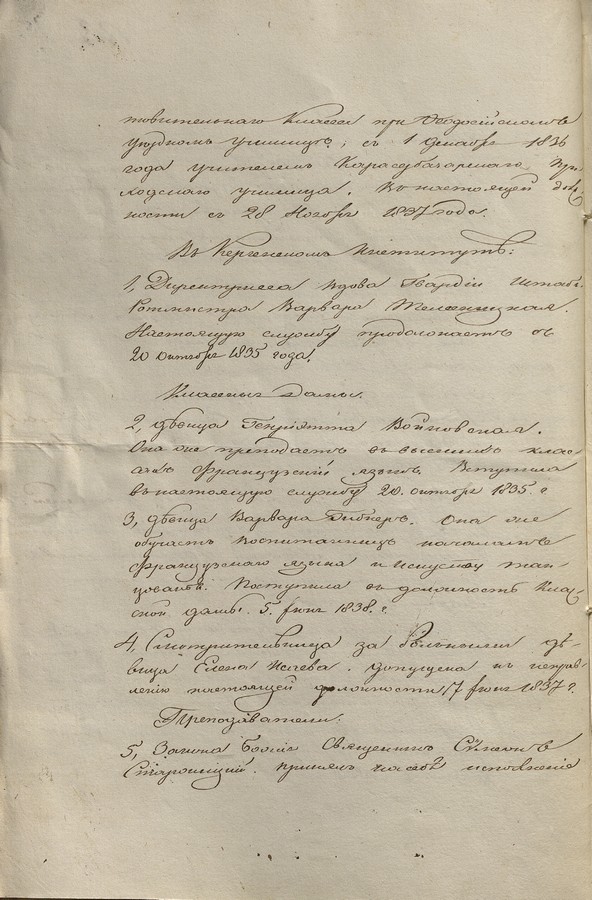 товительнаго класса при Ѳеодосійскомъ
уѣздномъ училищѣ; съ 1 декабря 1836
года учителемъ Карасубазарскаго При
ходскаго училища. Въ настоящей долж
ности съ 28 Ноября 1837 года.
Въ Керченскомъ Институтѣ:
1, Директрисса вдова Гвардіи Штабъ
Ротмистра Варвара
Настоящую службу продолжаетъ съ
20 октября 1835 года.
Классныя Дамы.
2, дѣвица Генріэтта Войновская.
Она же преподаетъ въ высшихъ клас-
сахъ Французскій языкъ. Вступила
въ настоящую службу 20. октября 1835. г
3, дѣвица Варвара Она же
обучаетъ воспитанницъ началамъ
Французскаго языка и искуству тан-
цованія. Поступила въ должность Клас-
сной дамы. 5. 1838. г.
4, Смотрительница за больными дѣ-
вица Елена Исаева. допущена къ исправ-
ленію настоящей должности 7 1837 г.
Преподаватели:
5, Закона Божія Священникъ Сѵмеонъ
принялъ на себя исполненіе